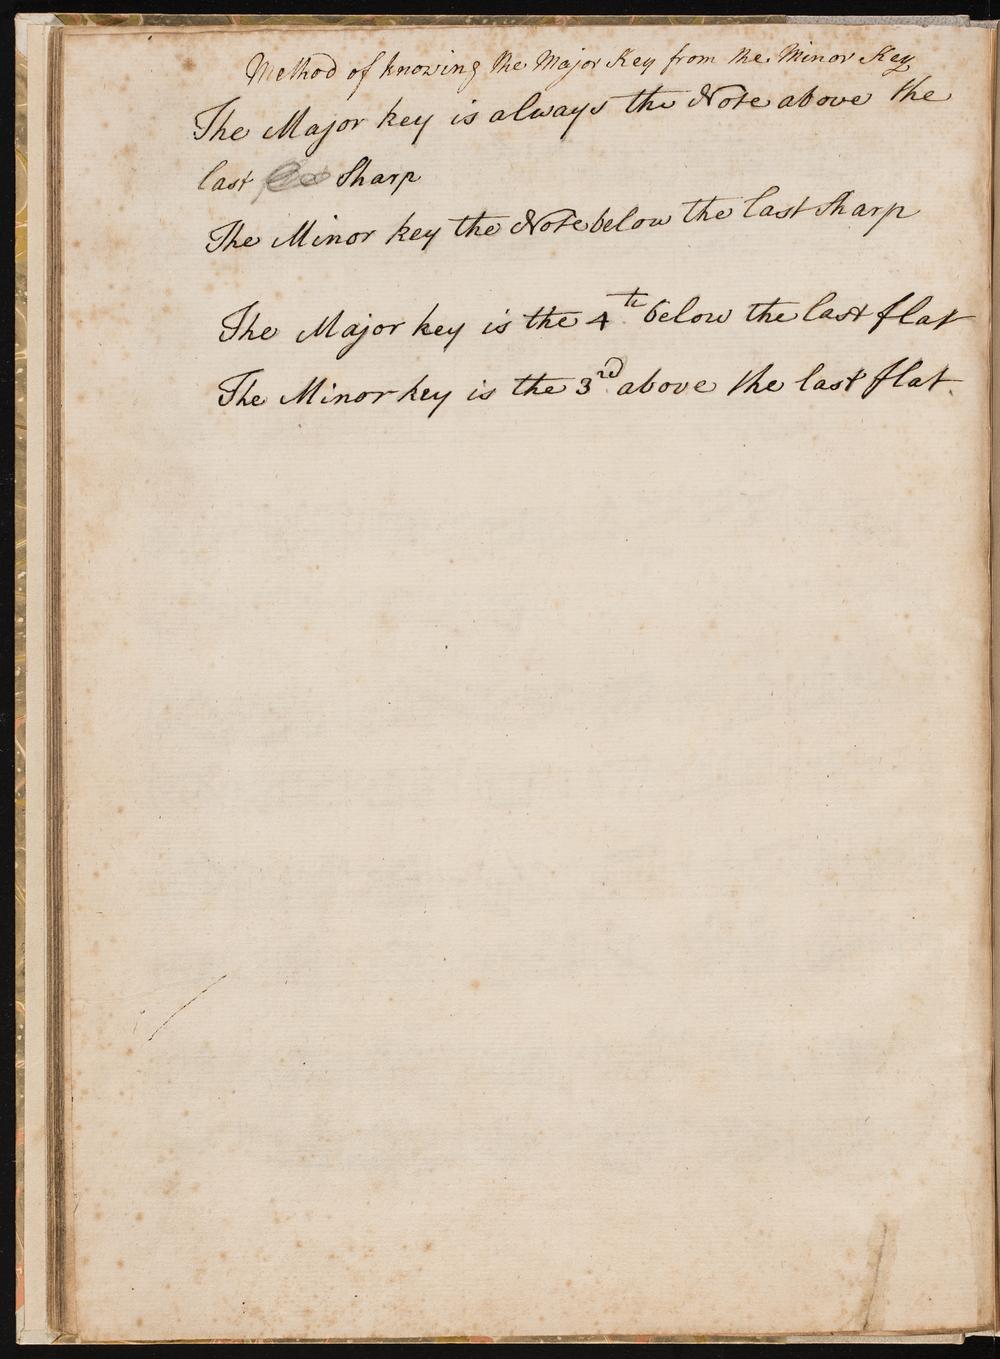 Method of knowing the Major Key from the Minor Key
The Major key is always the Note above the
last Sharp
The Minor key the Note below the last sharp
The Major key is the 4th below the last flat
The Minor key is the 3rd above the last flat.